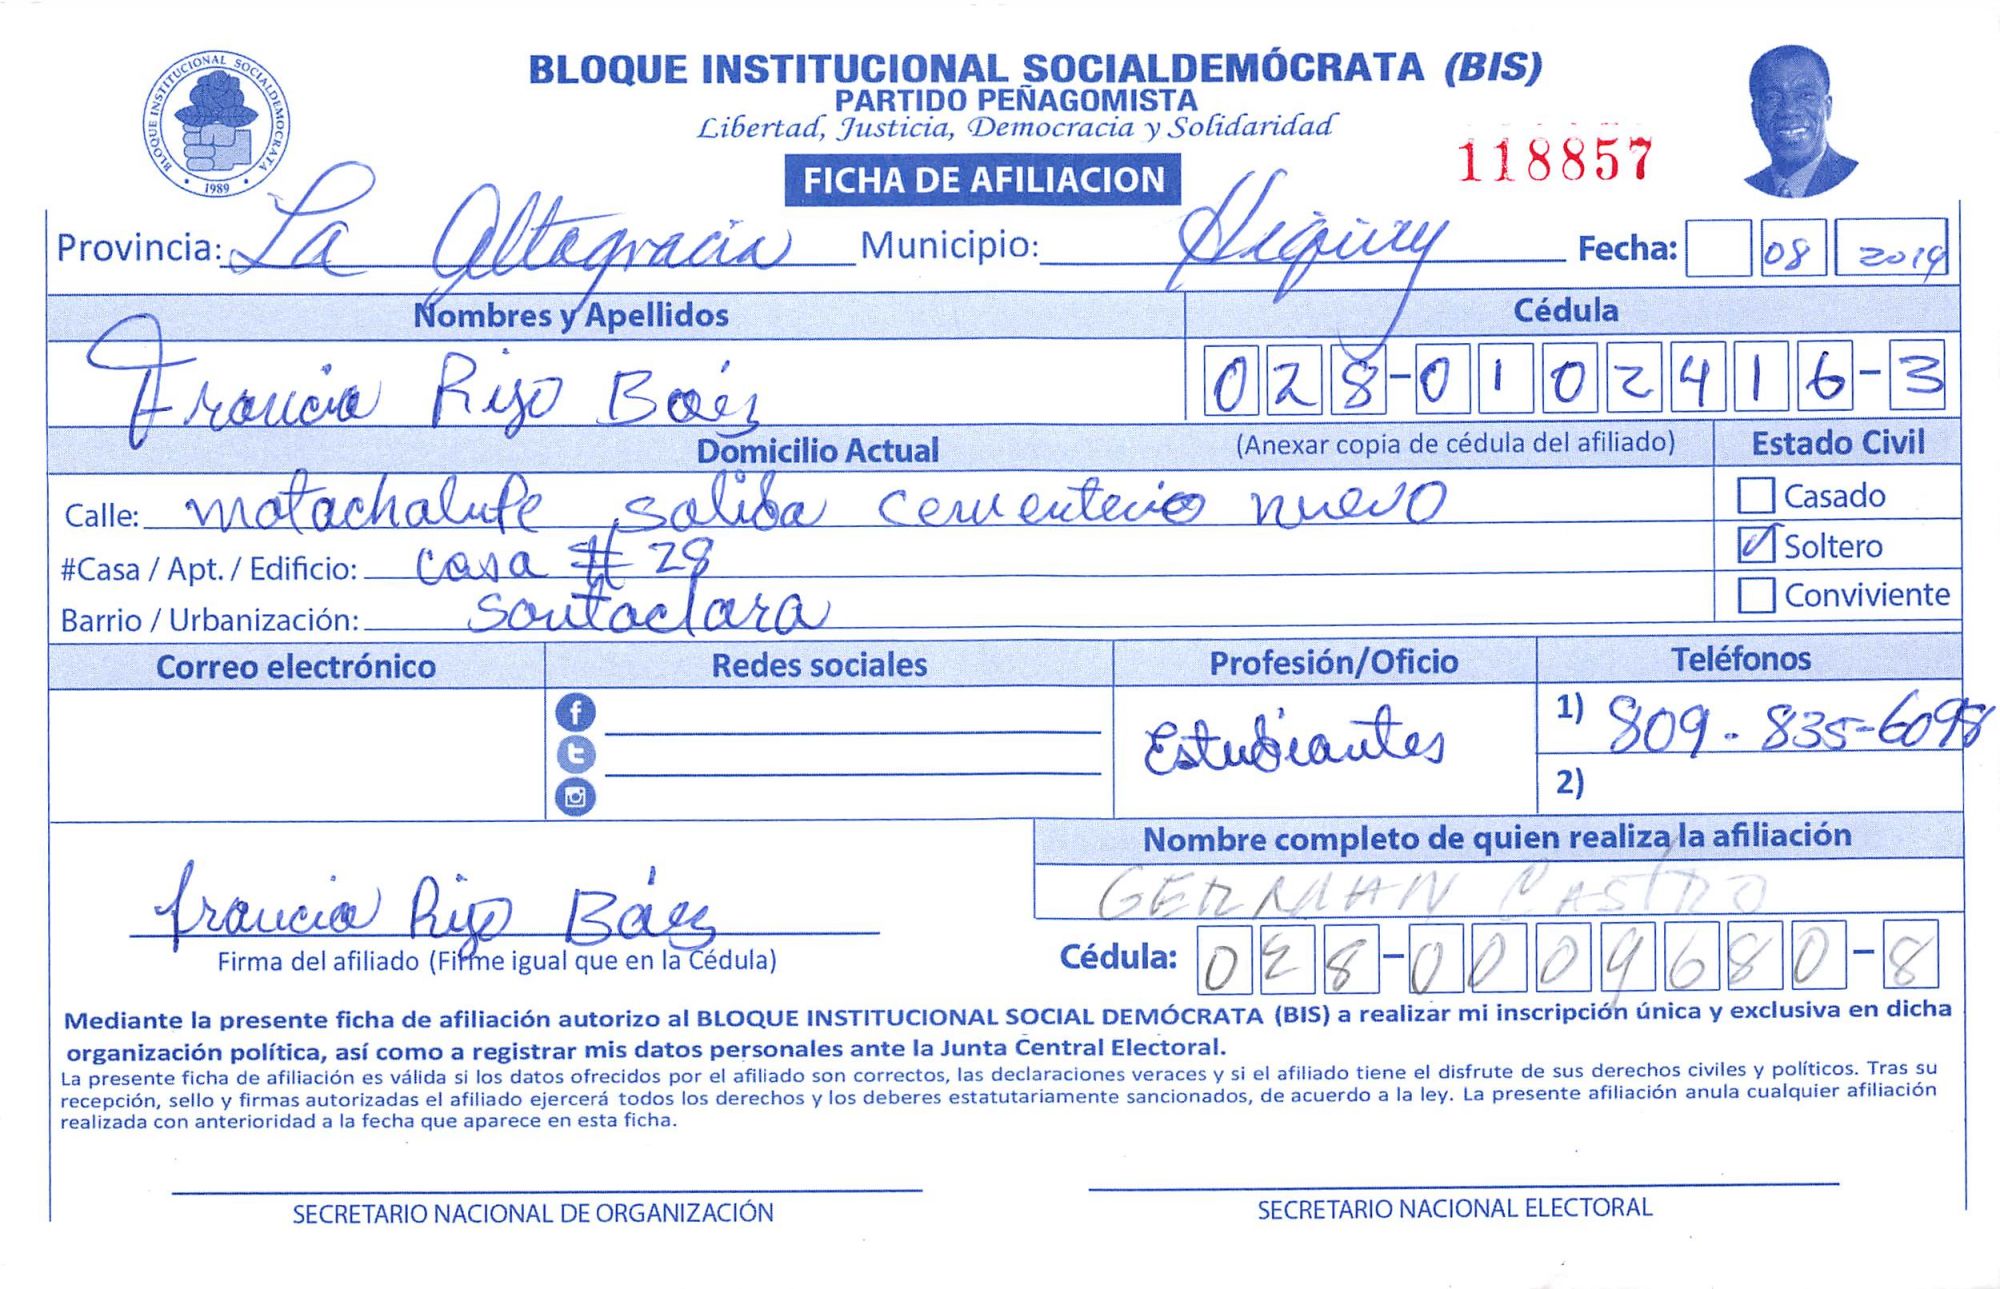 BLOQUE INSTITUCIONAL SOCIALDEMÓCRATA (BIS)
PARTIDO PEÑAGOMISTA
Libertad, Justicia, Democracia y Solidaridad
BLOQUE INSTITUCIONAL SOCIALDEMÓCRATA
• 1989 •
118857
FICHA DE AFILIACION
Provincia: La Altagracia Municipio: Higüey Fecha: 08 2019
Nombres y Apellidos Cédula
Francia Rijo Baéz 028-0102416-3
Domicilio Actual (Anexar copia de cédula del afiliado) Estado Civil
Calle: matachalupe salida cementerio nuevo Casado
#Casa / Apt. / Edificio: casa # 28 Soltero
Barrio / Urbanización: Santaclara Conviviente
Correo electrónico Redes sociales Profesión/Oficio Teléfonos
Estudiantes 1) 809-835-6098
2)
Nombre completo de quien realiza la afiliación
GERMAN CASTRO
francia Rijo Báez
Firma del afiliado (Firme igual que en la Cédula) Cédula: 028-0009680-8
Mediante la presente ficha de afiliación autorizo al BLOQUE INSTITUCIONAL SOCIAL DEMÓCRATA (BIS) a realizar mi inscripción única y exclusiva en dicha
organización política, así como a registrar mis datos personales ante la Junta Central Electoral.
La presente ficha de afiliación es válida si los datos ofrecidos por el afiliado son correctos, las declaraciones veraces y si el afiliado tiene el disfrute de sus derechos civiles y políticos. Tras su
recepción, sello y firmas autorizadas el afiliado ejercerá todos los derechos y los deberes estatutariamente sancionados, de acuerdo a la ley. La presente afiliación anula cualquier afiliación
realizada con anterioridad a la fecha que aparece en esta ficha.
SECRETARIO NACIONAL DE ORGANIZACIÓN SECRETARIO NACIONAL ELECTORAL